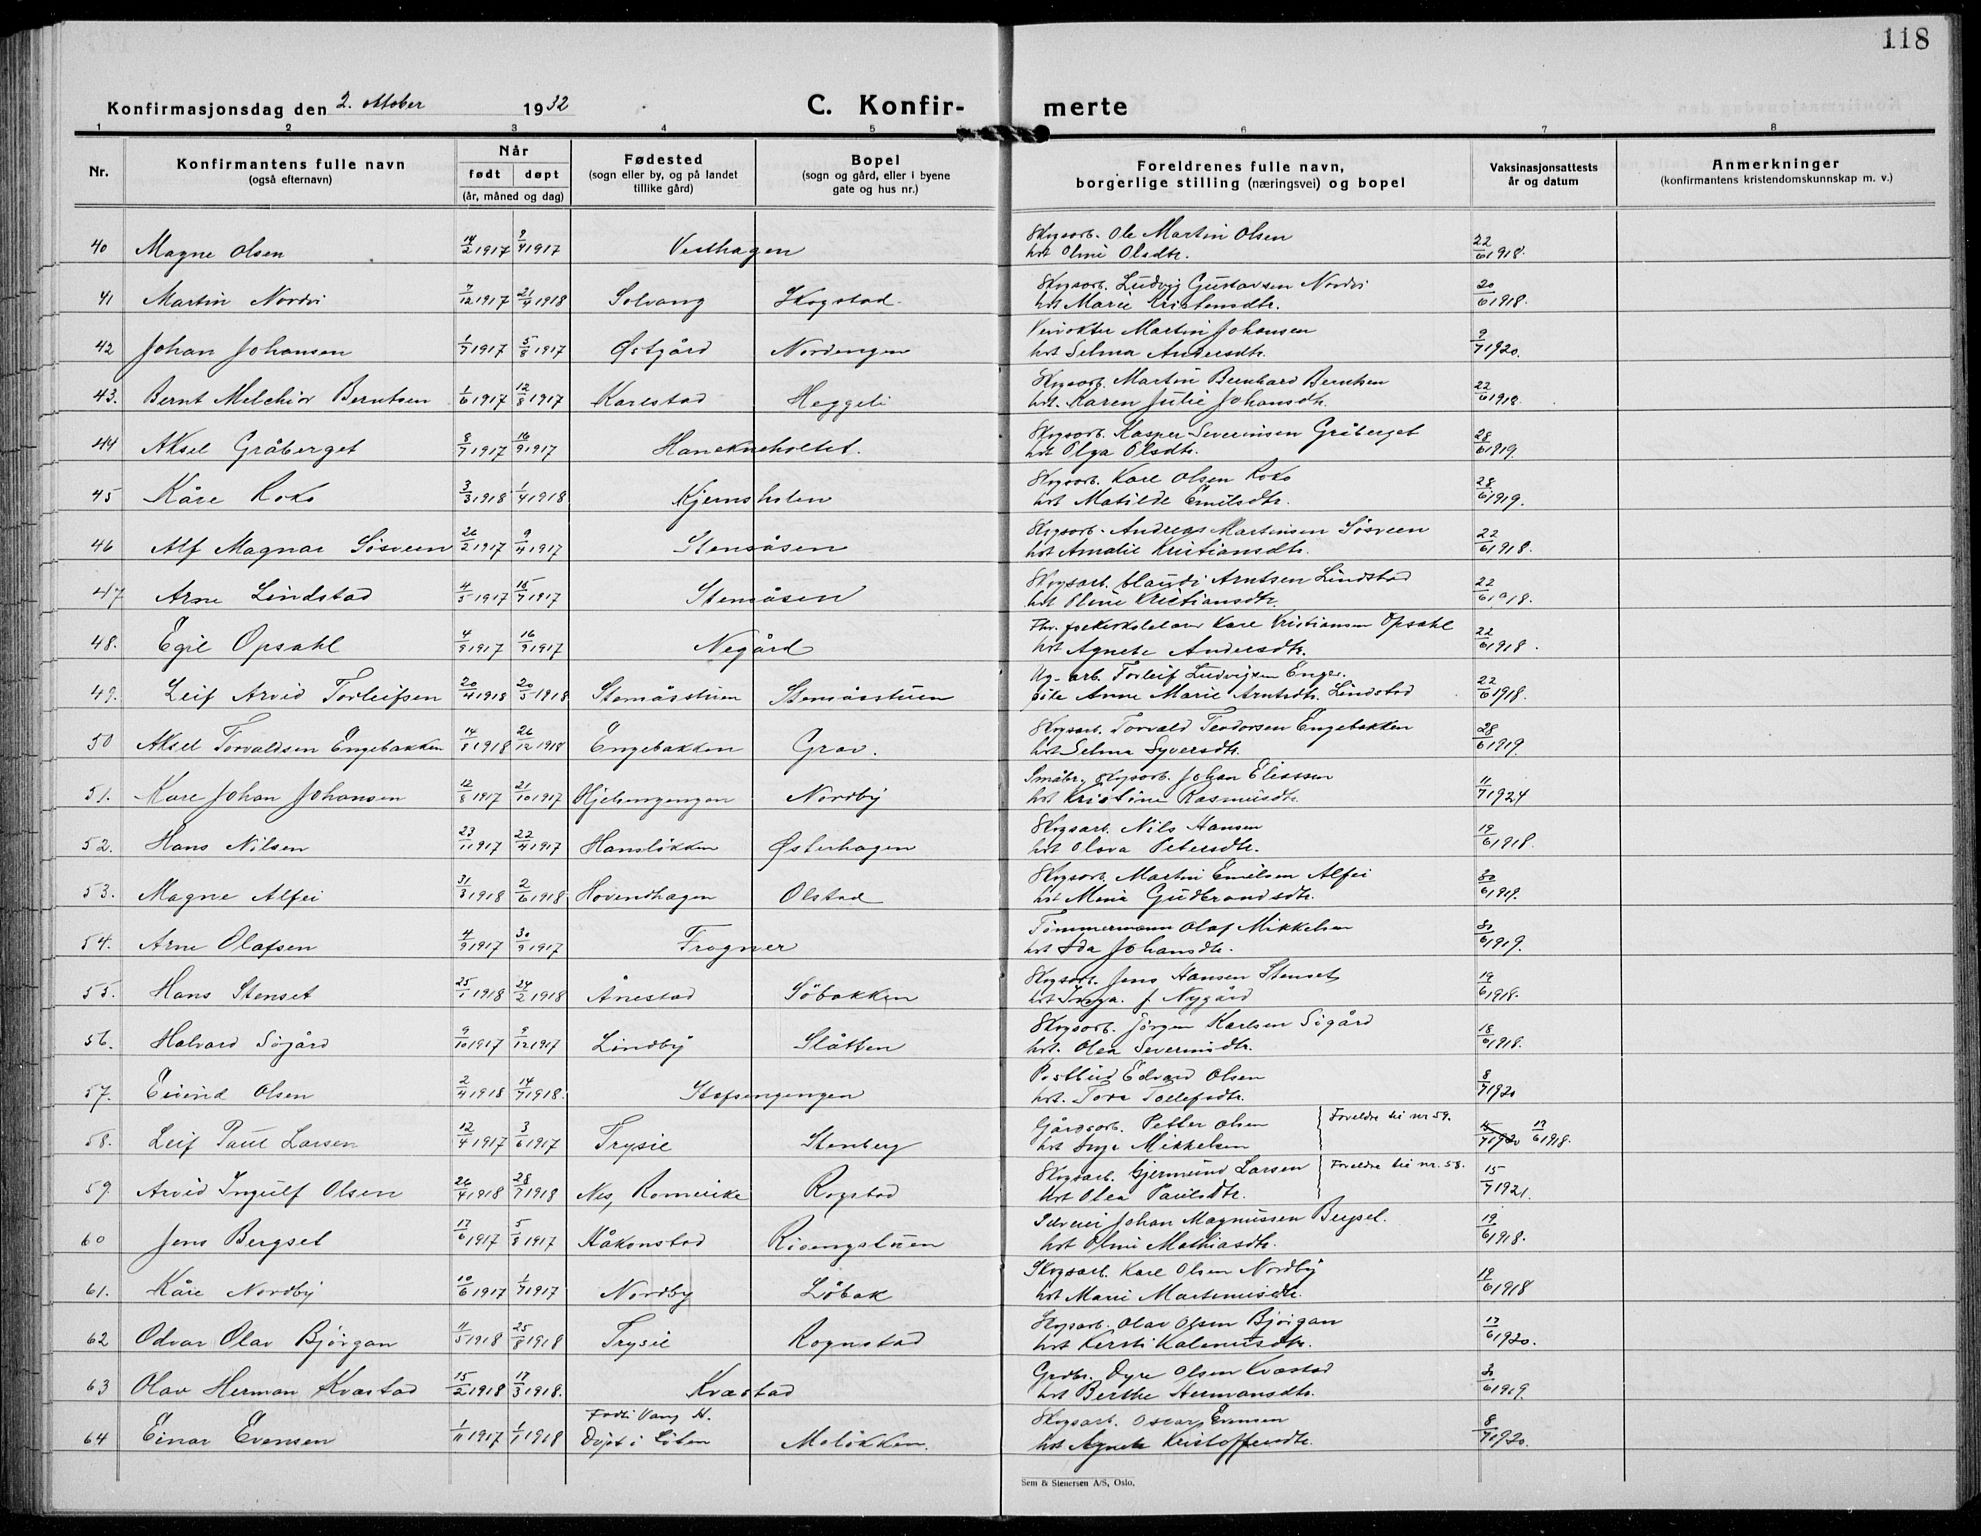 118
Konfirmasjonsdag den 2. oktober 1932
C. Konfir-merte
1 2 3 4 5 6 7 8
Nr.
Konfirmantens fulle navn
(også efternavn)
Når
født døpt
(år, måned og dag)
Fødested
(sogn eller by, og på landet
tillike gård)
Bopel
(sogn og gård, eller i byene
gate og hus nr.)
Foreldrenes fulle navn,
borgerlige stilling (næringsvei) og bopel
Vaksinasjonsattests
år og datum
Anmerkninger
(konfirmantens kristendomskunnskap m. v.)
40 Magne Olsen 14/2 1917 9/4 1917 Vesthagen Skogsarb. Ole Martin Olsen
hst Oline Olsdtr. 22/6 1918.
41 Martin Nordvi 7/12 1917 21/4 1918 Solvang Skogstad. Skogsarb. Ludvig Gustavsen Nordvi
hst Marie Kristensdtr. 20/6 1918.
42 Johan Johansen 1/7 1917 5/8 1917 Østgård Nordengen Martin Johansen
hst Selma Andersdtr. 9/7 1920.
43. Bernt Melchior Berntsen 1/6 1917 12/8 1917 Karlstad Heggeli Skogsarb. Martin Bernhard Berntsen
hst. Karen Julie Johansdtr. 22/6 1918.
44 Aksel Gråberget 8/7 1917 16/9 1917 Hanekneholtet. Skogsarb. Kasper Severinsen Gråberget
hst Olga Olsdtr. 28/6 1919.
45 Kåre Roko 3/3 1918 1/4 1918 Kjernsholen Skogsarb. Kare Olsen Roko
hst Matilde Emilsdtr. 28/6 1919.
46 Alf Magnar Søsveen 26/2 1917 9/4 1917 Stensåsen Skogsarb. Andreas Martinsen Søsveen
hst Amalie Kristiansdtr. 22/6 1918.
47 Arne Lindstad 4/5 1917 15/7 1917 Stensåsen Skogsarb. Arntsen Lindstad
hst Oline Kristiansdtr. 22/6 1918.
48. Egil Opsahl 4/9 1917 16/9 1917 Negård Kare Kristiansen Opsahl
hst Agnete Andersdtr. 22/6 1918.
49. Leif Arvid Torleifsen 20/4 1918 20/5 1918 Stensåsstuen Stensåsstuen Ug. arb. Torleif Ludvigsen Enger.
pike Anne Marie Arntsdtr. Lindstad 22/6 1918.
50 Aksel Torvaldsen Engebakken 14/8 1918 26/12 1918 Engebakken Grav. Skogsarb. Torvald Teodorsen Engebakken
hst Selma Syversdtr. 28/6 1919.
51. Kare Johan Johansen 12/8 1917 21/10 1917 Nordby Småbr. skogsarb. Johan Eliassen
hst Kristine Rasmusdtr. 11/7 1924
52. Hans Nilsen 23/1 1917 22/4 1917 Hansløkken Østerhagen Skogsarb. Nils Hansen
hst Olava Petersdtr. 19/6 1918.
53. Magne Alfei 31/3 1918 2/6 1918. Hovendhagen Olstad Skogsarb. Martin Emilsen Alfei
hst Mina Gudbrandsdtr. 30/6 1919.
54. Arne Olafsen 4/9 1917 30/9 1917 Frogner Tømmermann Olaf Mikkelsen
hst Ida Johansdtr. 30/6 1919.
55. Hans Stenset 25/1 1918 24/2 1918 Ånestad Søbakken Skogsarb. Jens Hansen Stenset
hst Inga. f Nygård 19/6 1918.
56. Halvard Søgård 9/10 1917 9/12 1917 Lindby Slåtten Skogsarb. Jørgen Karlsen Søgård
hst. Olea Severinsdtr. 18/6 1918.
57. Eivind Olsen 2/4 1918 14/7 1918. Stafsengengen Postbud Edvard Olsen
hst. Tora Tollefsdtr. 8/7 1920
58. Leif Paul Larsen 12/4 1917 3/6 1917 Trysil Stenberg Gårdsarb. Petter Olsen
hst Inga Mikkelsen Foreldre til nr 59. 15/7 1920 17/6 1918.
59. Arvid Ingulf Olsen 26/4 1918 28/7 1918 Nes, Romerike Rogstad Skogsarb. Gjermund Larsen
hst Olea Paulsdtr. Foreldre til nr. 58. 15/7 1921.
60 Jens Bergset 17/6 1917 5/8 1917 Håkonstad Risengstuen Selveier Johan Magnussen Bergset.
hst Oline Mathiasdtr. 19/6 1918.
61. Kåre Nordby 10/6 1917 1/7 1917 Nordby Løbak Skogsarb. Kare Olsen Nordby
hst Marie Martinusdtr. 19/6 1918
62 Odvar Olav Bjørgan 11/5 1918 25/8 1918 Trysil Rognstad Skogsarb. Olav Olsen Bjørgan
hst Kersti Kalenusdtr. 17/6 1920.
63 Olav Herman Kvæstad 15/2 1918 17/3 1918. Kvæstad Grdbr. Dyre Olsen Kvæstad
hst Berthe Hermansdtr. 30/6 1919.
64 Einar Evensen 1/11 1917 1/1 1918 Født i Vang H.
Døpt i Løten Moløkken. Skogsarb. Oscar Evensen
hst Agnete Kristoffersdtr. 8/7 1920.
Sem & Stenersen A/S, Oslo.